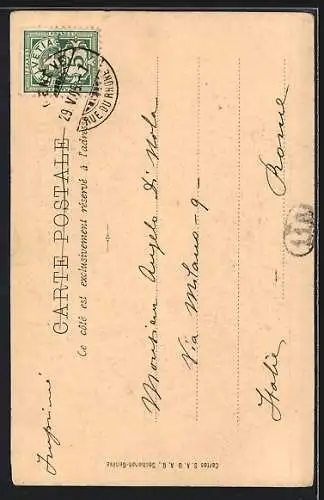 HELVETIA
5
29 VI
RUE DU RHONE
CARTE POSTALE
Ce côté est exclusivement réservé à l'adresse
Imprimé
Monsieur Angelo Di Nola
Via Milano - 9 -
Rome
Italie
Cartes S.A.D.A.G., Sécheron-Genève